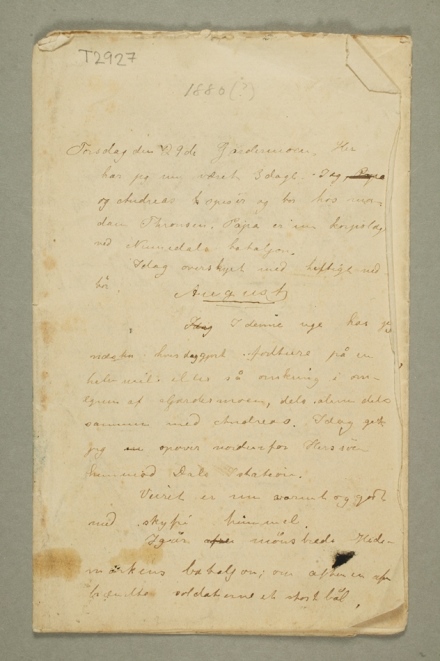 T2927
1880(?)
Torsdag den 29de Gardemoen. Her
har jeg nu været 3 dage. Jeg, Papa
og Andreas og bor hos
Papa er som korpslæge
ved Numedals bataljon.
Idag overskyet med heftigt ned-
bør.
August
I denne uge har jeg
næsten hver dag gjort fodture på en
halv mils eller så omkring i om-
egnen af Gardermoen, dels alene dels
sammen med Andreas. Idag gik
jeg opover nordenfor Herssøen
henimod Dals station.
Veiret er nu varmt og godt
med skyfri himmel.
Igår mønstrede Hede-
markens bataljon; om aftenen
soldaterne et stort bål,